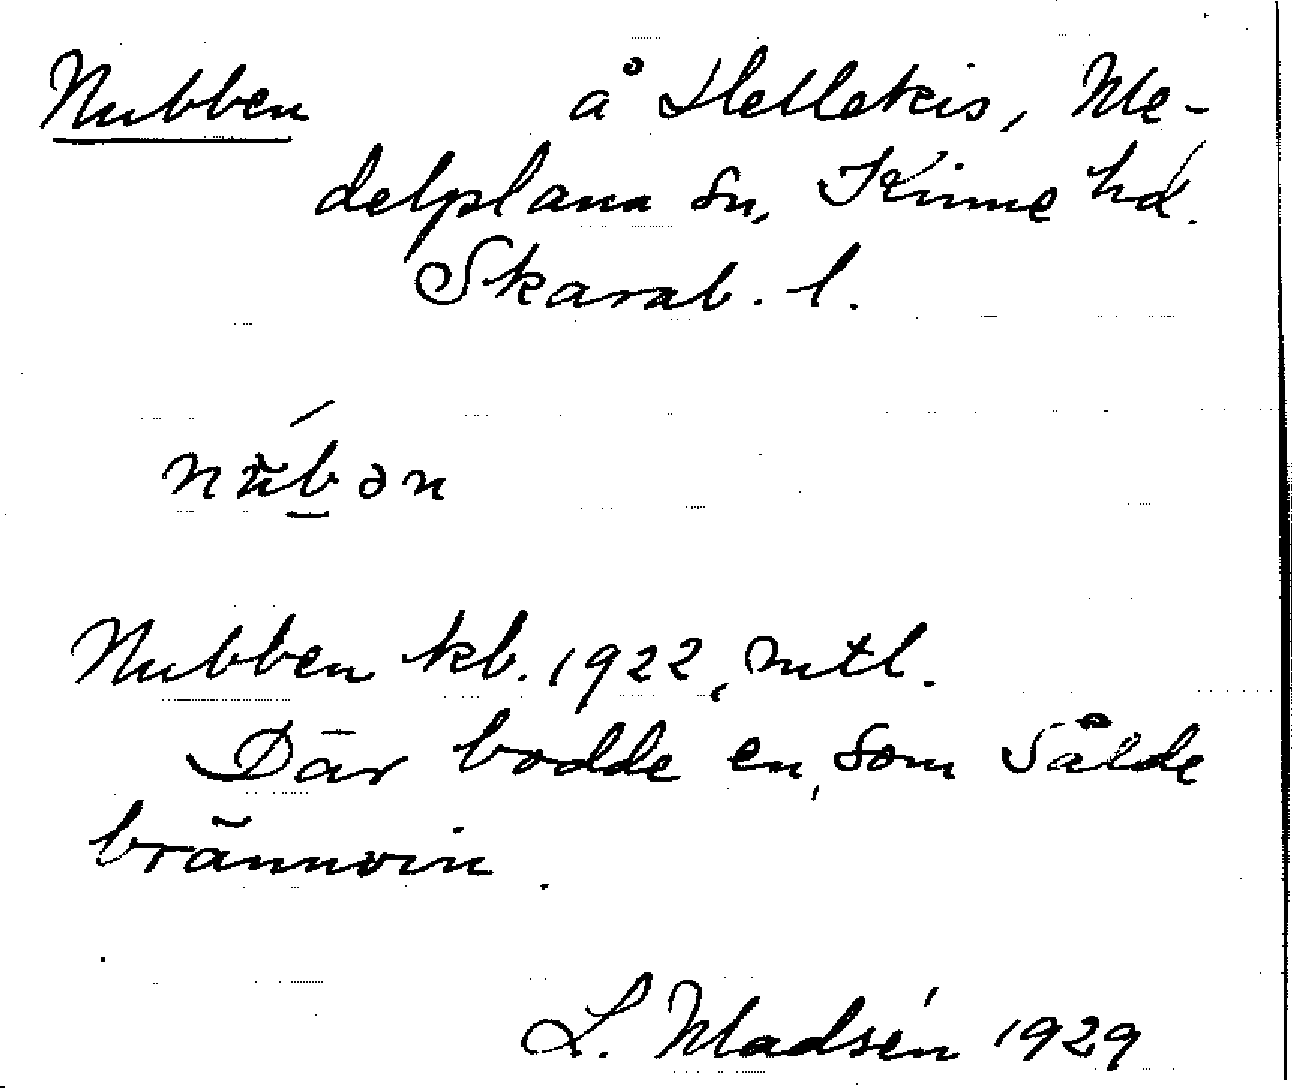 Nubben å Hellekis, Me-
delplana sn, Kinne hd.
Skarab. l.
nŭ́b̲ən
Nubben kb. 1922, mtl.
Där bodde en, som sålde
brännvin.
L. Madsén 1929